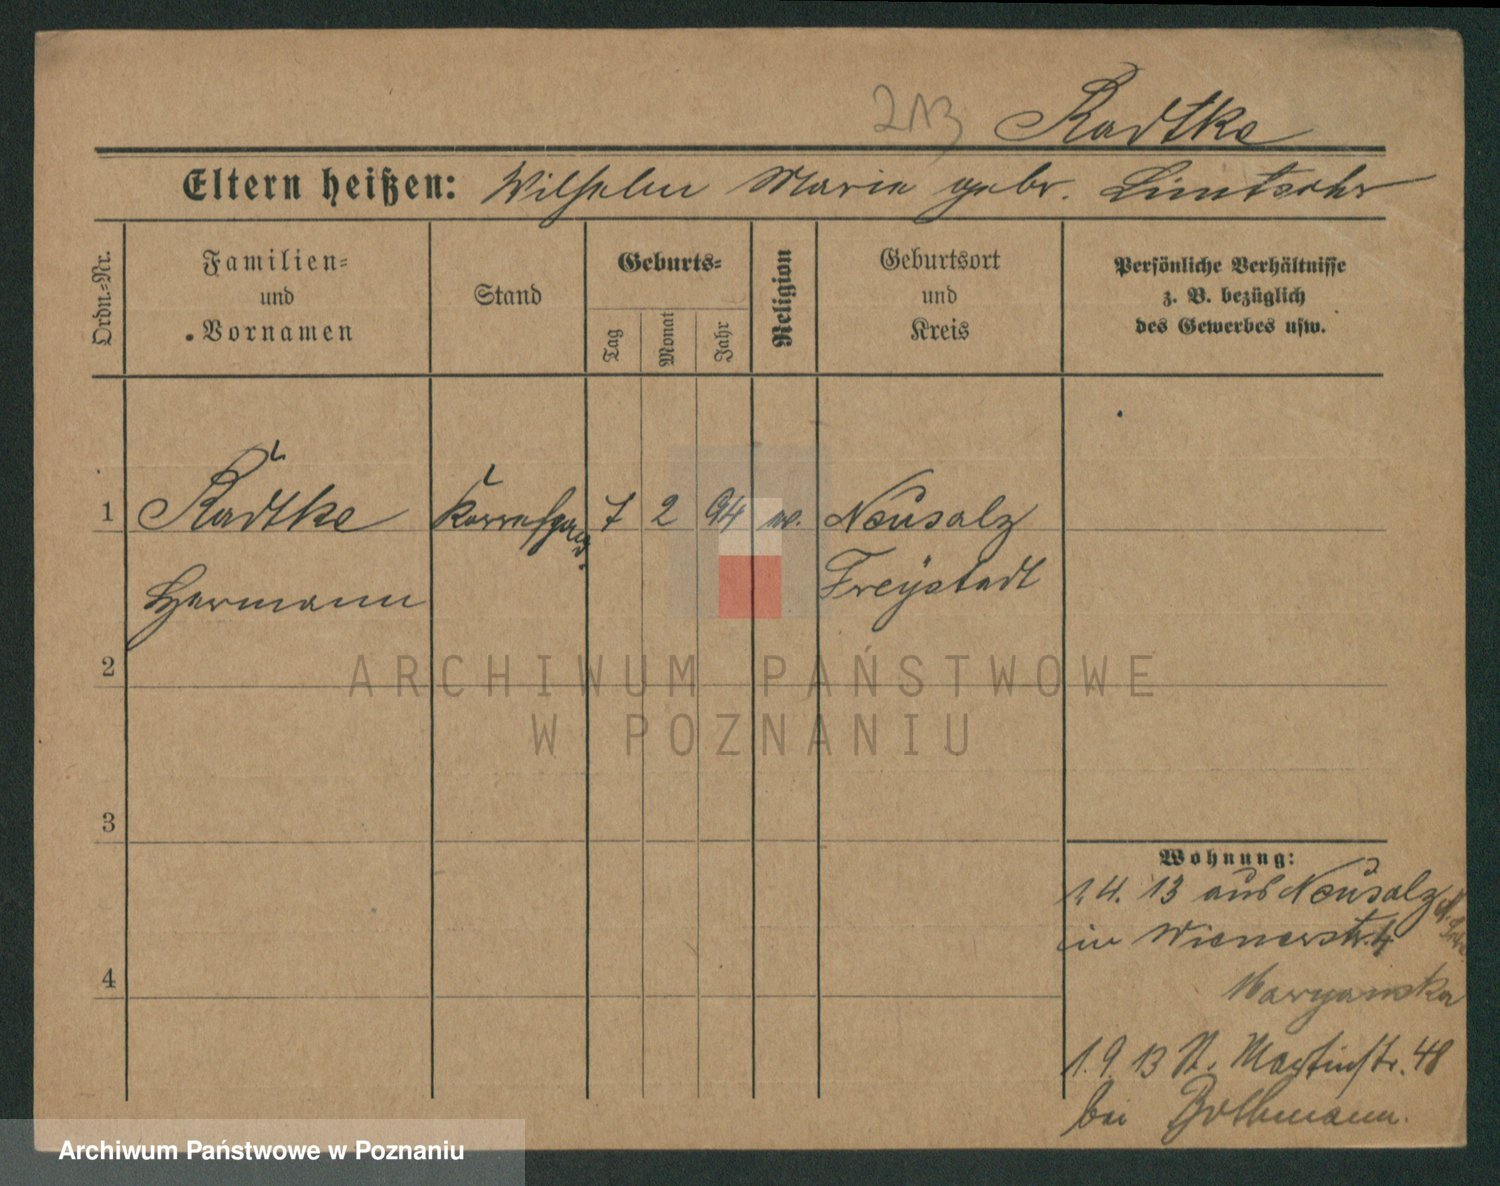 213 Radtke
Eltern heißen: Wilhelm Marie gebr.
Ordn.=Nr.
Familien=
und
Vornamen
Stand
Geburts=
Tag
Monat
Jahr
Religion
Geburtsort
und
Kreis
Persönliche Verhältnisse
z. B. bezüglich
des Gewerbes usw.
1 Radtke 7 2 94 Neusalz
Hermann Freystadt
2
3
4
Wohnung:
1.4. 13 aus Neusalz
in Wienerstr. 4
1.9.13 St. Martinstr. 48
bei
ARCHIWUM PAŃSTWOWE
W POZNANIU
Archiwum Państwowe w Poznaniu